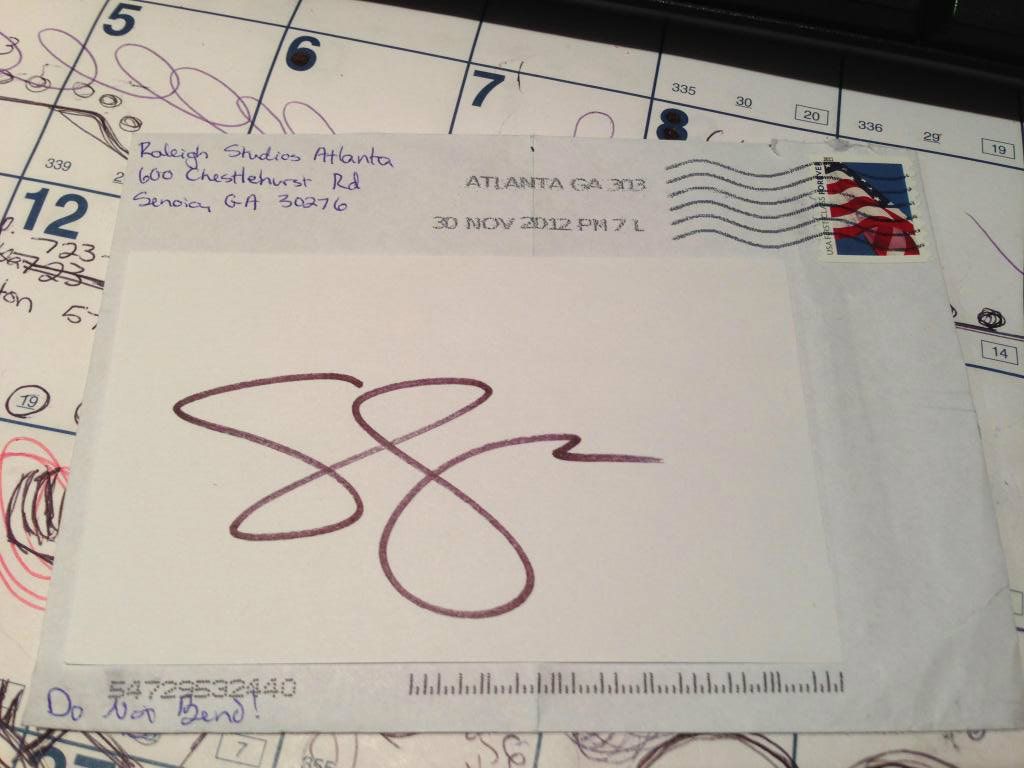 5
6
7
335
30
20
8
336
29
19
339
12
723
723
19
14
Raleigh Studios Atlanta
600 Chestlehurst Rd
Senoia, GA 30276
ATLANTA GA 303
30 NOV 2012 PM 7 L
USA FIRST-CLASS FOREVER
54729532440
Do Not Bend!
7